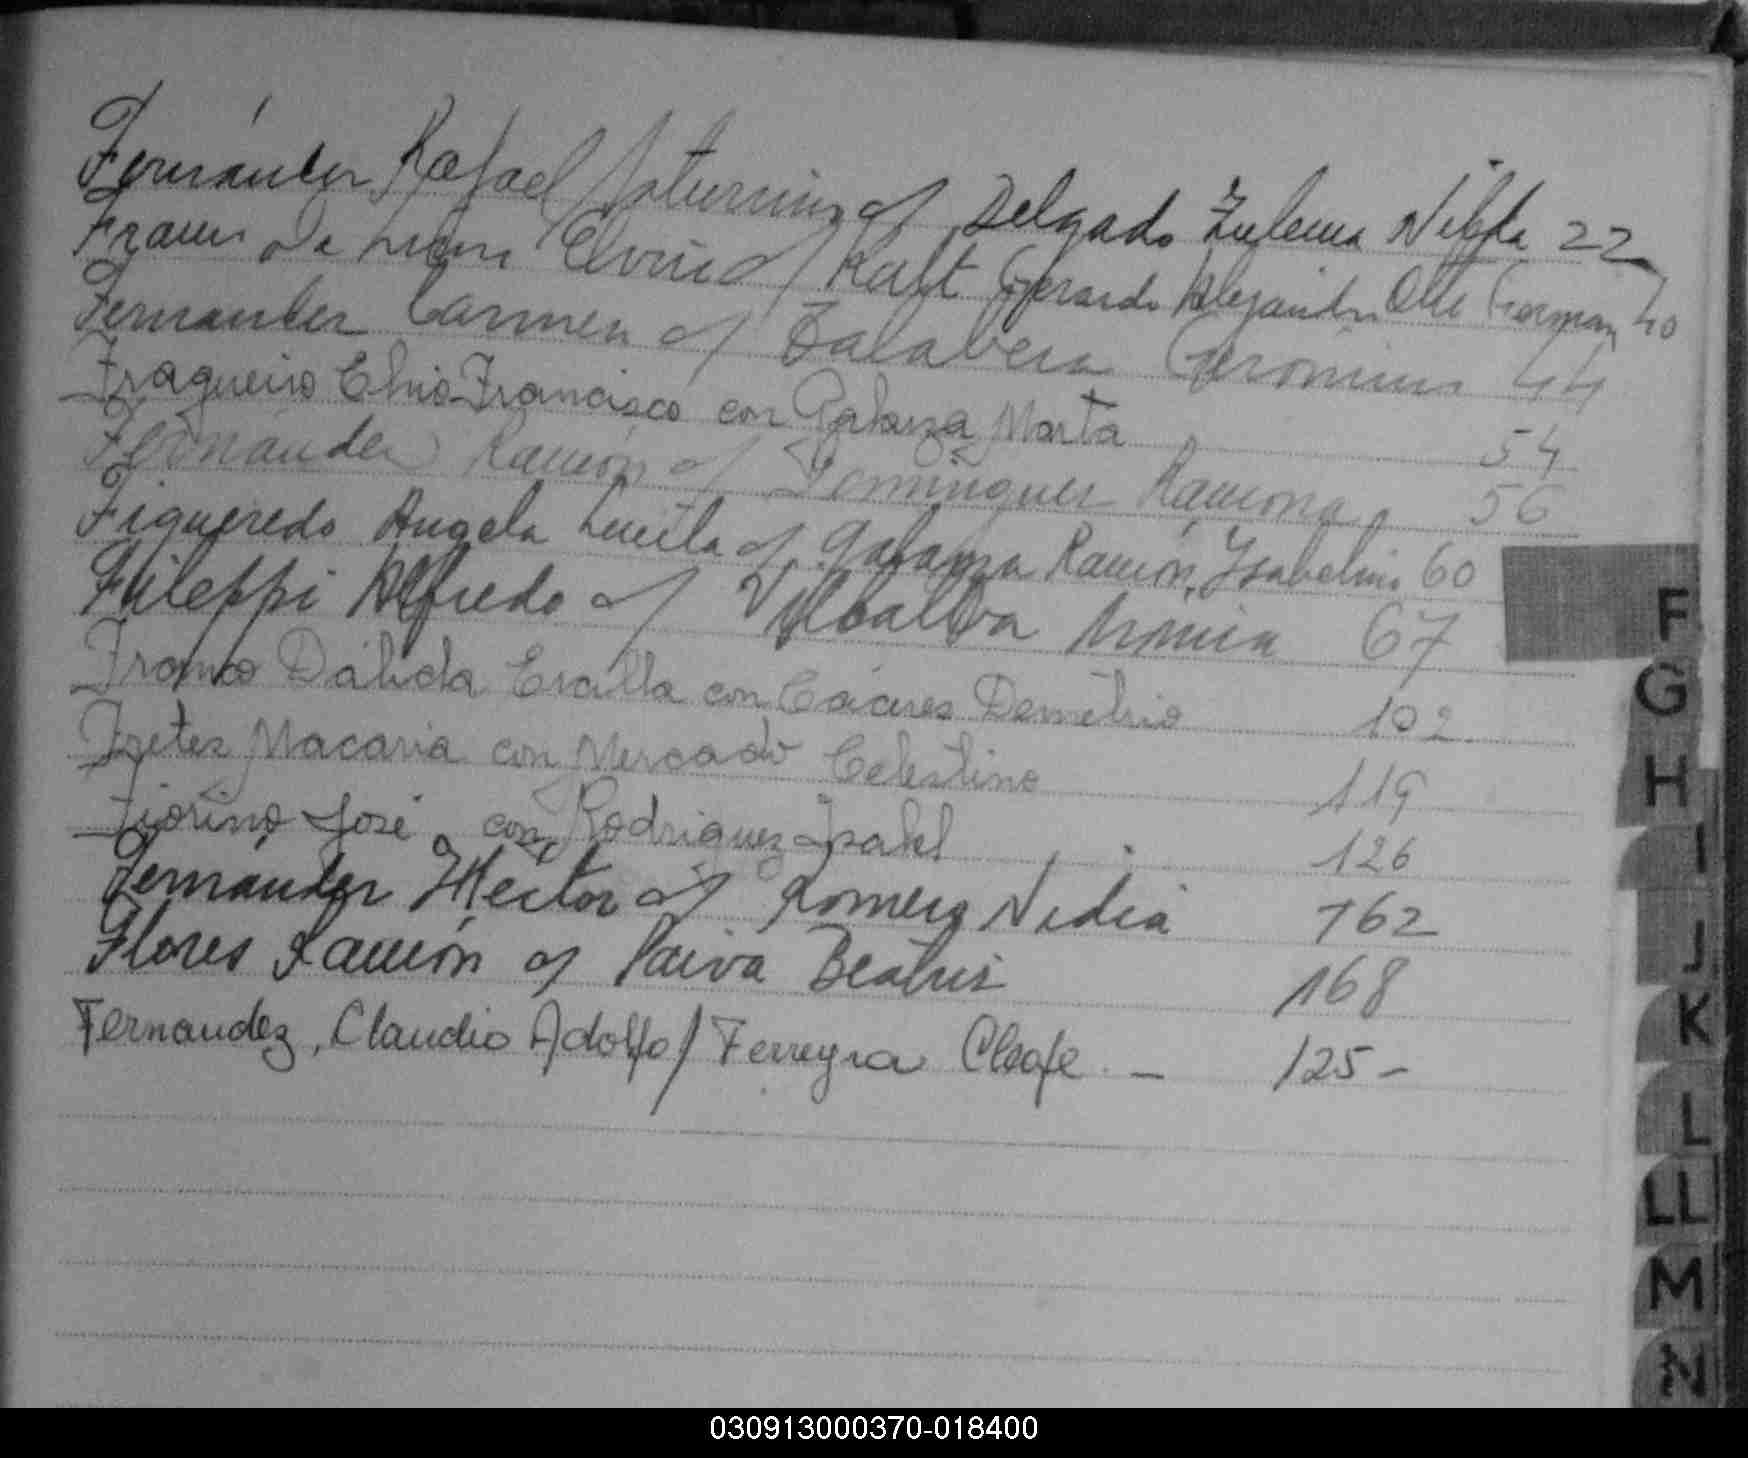 Fernández Rafael Saturnino c/ Delgado Zulema Nilda 22
Elvira c/ Kalt Gerardo Alejandro Otto German 40
Fernández Carmen c/ Zalabera Gerónimo 44
Fragueiro Elvio Francisco con Galarza Marta 54
Fernández Ramón c/ Domínguez Ramona 56
Figueredo Angela Lucila c/ Galarza Ramón Ysabelino 60
Fileppi Alfredo c/ Villalba Mónica 67
Franco Dálida Ersilla con Cáceres Demetrio 102
Fretes Macaria con Mercado Celestino 119
Fiorino José con Rodriguez Isabel 126
Fernández Héctor c/ Romero Nidia 162
Flores Ramón c/ Paiva Beatris 168
Fernandez, Claudio Adolfo / Ferreyra Cleofe. — 125 -
F
G
H
I
J
K
L
LL
M
N
030913000370-018400